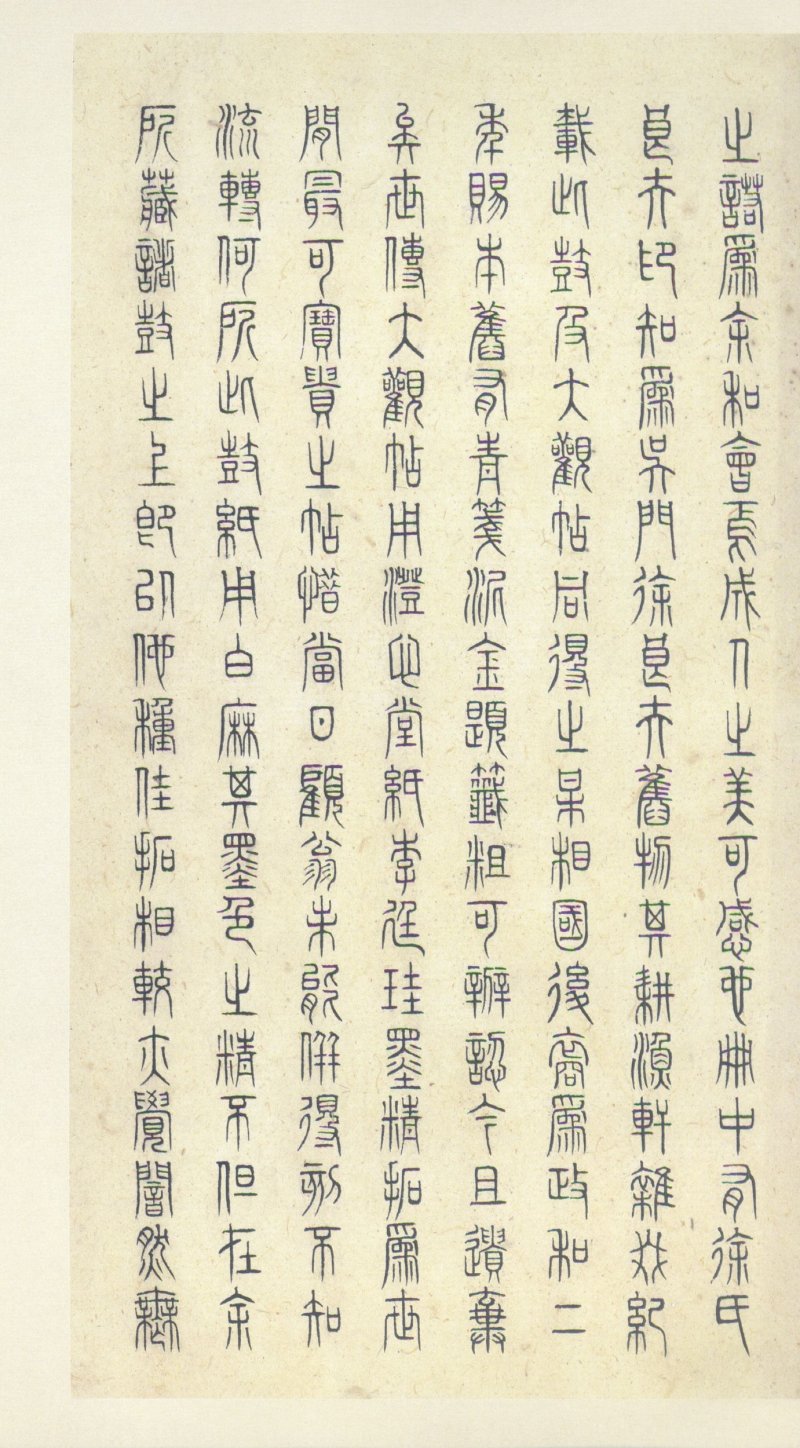 之諾為余和會焉成人之美可感也冊中有徐氏
良夫印知為吳門徐良夫舊物其耕漁軒雜效紀
載此鼓及大觀帖同得之某相國後裔為政和二
年賜本舊有青箋泥金題籤粗可辦認今且遺棄
矣世傳大觀帖用澄心堂紙李廷珪墨精拓為世
間最可寶貴之帖惜當日顧翁未能併得刻不知
流轉何所此鼓紙用白麻其墨色之精不但在余
所藏諸鼓之上即以他種佳拓相較亦覺闇然無